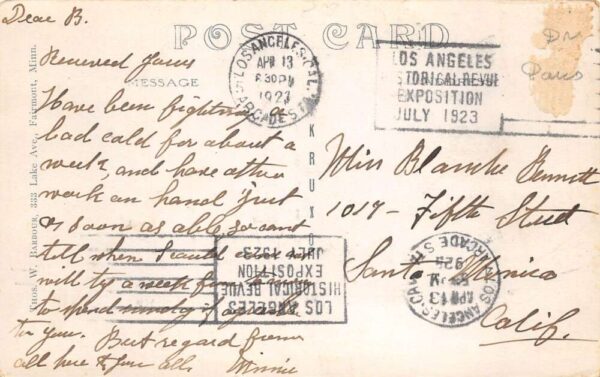 Dear B.
POST CARD
Received yours
MESSAGE
Have been fighting a
bad cold for about a
week, and have other
work on hand just
as soon as able, so cant
tell when I could
will try a week from
to spend sunday if agreeable
to you. Best regard from
all here to you all. Minnie
THOS. W. BARBOUR, 333 Lake Ave., Fairmont, Minn.
KRUXO
LOS ANGELES, CAL.
ARCADE STA.
APR 13
6 30 PM
1923
LOS ANGELES
HISTORICAL REVUE
EXPOSITION
JULY 1923
Paris
Miss Blanche Bennett
1017 - Fifth Street
Santa Monica
Calif.
LOS ANGELES
HISTORICAL REVUE
EXPOSITION
JULY 1923
LOS ANGELES, CAL.
ARCADE STA.
APR 13
1923